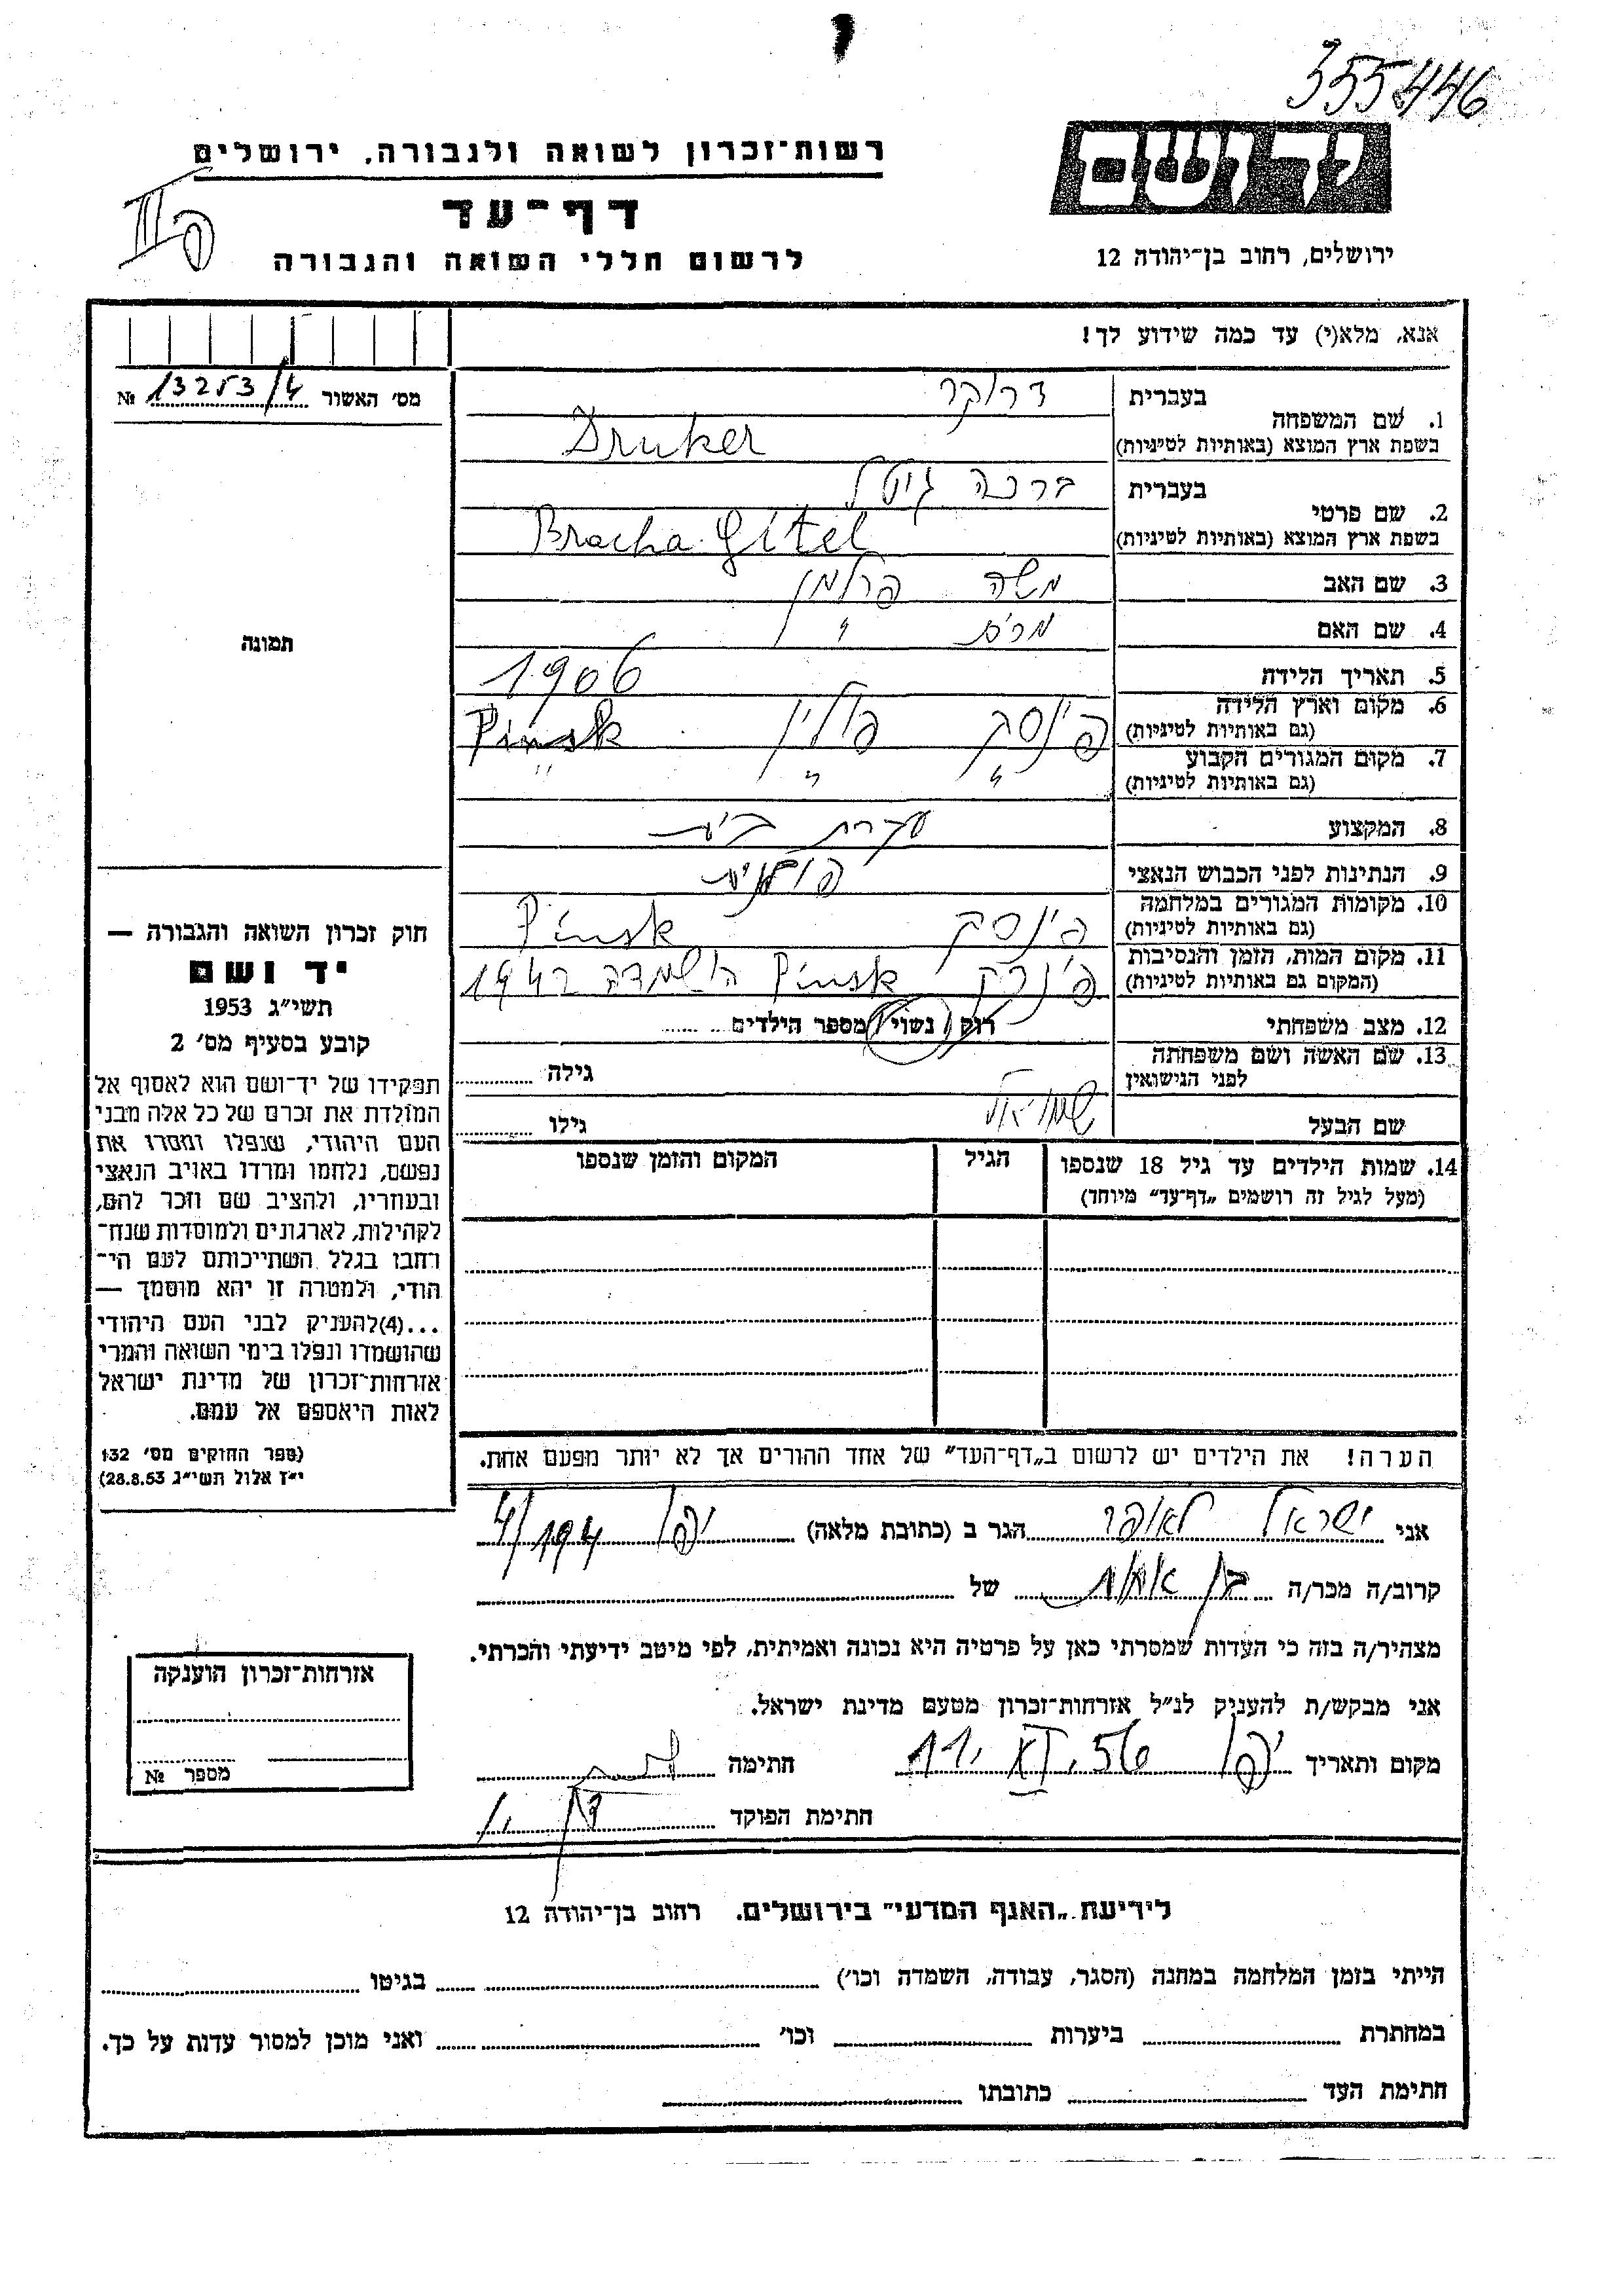 355446
יד ושם
רשות־זכרון לשואה ולגבורה, ירושלים
דף־עד
לרשום חללי השואה והגבורה
ירושלים, רחוב בן־יהודה 12
אנא, מלא(י) עד כמה שידוע לך!
מס׳ האשור 13253/4 №
תמונה
1. שם המשפחה בעברית דרוקר
בשפת ארץ המוצא (באותיות לטיניות) Druker
2. שם פרטי בעברית ברכה גיטל
בשפת ארץ המוצא (באותיות לטיניות) Bracha Gitel
3. שם האב משה פרלמן
4. שם האם "
5. תאריך הלידה 1906
6. מקום וארץ הלידה פינסק פולין Pinsk
(גם באותיות לטיניות)
7. מקום המגורים הקבוע " " "
(גם באותיות לטיניות)
8. המקצוע עקרת בית
9. הנתינות לפני הכבוש הנאצי פולנית
10. מקומות המגורים במלחמה פינסק Pinsk
(גם באותיות לטיניות)
11. מקום המות, הזמן והנסיבות פינסק Pinsk הושמדה ב 1942
(המקום גם באותיות לטיניות)
12. מצב משפחתי רווק / נשוי / מספר הילדים
13. שם האשה ושם משפחתה
לפני הנישואין גילה
שם הבעל שמואל גילו
14. שמות הילדים עד גיל 18 שנספו הגיל המקום והזמן שנספו
(מעל לגיל זה רושמים „דף־עד״ מיוחד)
חוק זכרון השואה והגבורה —
יד ושם
תשי״ג 1953
קובע בסעיף מס׳ 2
תפקידו של יד־ושם הוא לאסוף אל
המולדת את זכרם של כל אלה מבני
העם היהודי, שנפלו ומסרו את
נפשם, נלחמו ומרדו באויב הנאצי
ובעוזריו, ולהציב שם וזכר להם,
לקהילות, לארגונים ולמוסדות שנח־
רבו בגלל השתייכותם לעם הי־
הודי, ולמטרה זו יהא מוסמך —
...(4)להעניק לבני העם היהודי
שהושמדו ונפלו בימי השואה והמרי
אזרחות־זכרון של מדינת ישראל
לאות היאספם אל עמם.
(ספר החוקים מס׳ 132
י״ז אלול תשי״ג 28.8.53)
הערה! את הילדים יש לרשום ב„דף־העד״ של אחד ההורים אך לא יותר מפעם אחת.
אני ישראל לאופר הגר ב (כתובת מלאה) יפו 194/4
קרוב/ה מכר/ה בן אחות של
מצהיר/ה בזה כי העדות שמסרתי כאן על פרטיה היא נכונה ואמיתית, לפי מיטב ידיעתי והכרתי.
אני מבקש/ת להעניק לנ״ל אזרחות־זכרון מטעם מדינת ישראל.
מקום ותאריך יפו 11. XI. 56 חתימה
חתימת הפוקד
אזרחות־זכרון הוענקה
מספר №
לידיעת „האגף המדעי״ בירושלים. רחוב בן־יהודה 12
הייתי בזמן המלחמה במחנה (הסגר, עבודה, השמדה וכו׳) בגיטו
במחתרת ביערות וכו׳ ואני מוכן למסור עדות על כך.
חתימת העד כתובתו